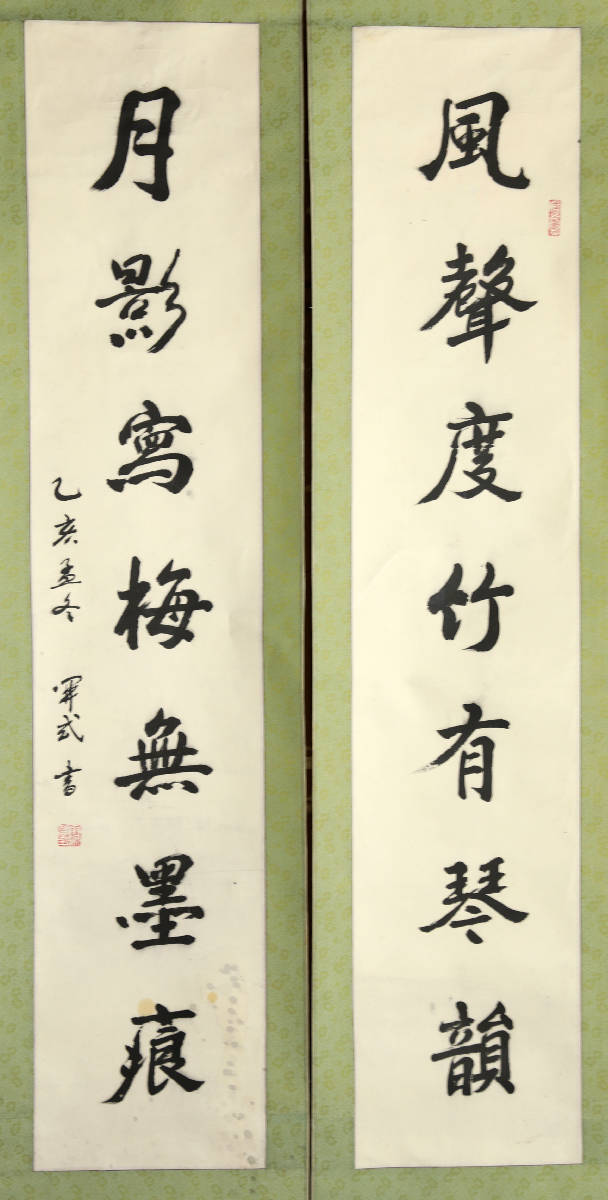 風聲度竹有琴韻
月影寫梅無墨痕
乙亥孟冬 暉武書